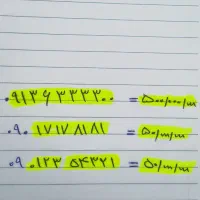 ۰۹۱۳۶۳۳۳۳۰۰ = ۵۰۰/۰۰۰/۰۰۰
۰۹۰ ۱۷۱۷۸۱۸۱ = ۵۰/۰۰۰/۰۰۰
۰۹۰ ۱۲۳ ۵۴۳۲۱ = ۵۰/۰۰۰/۰۰۰